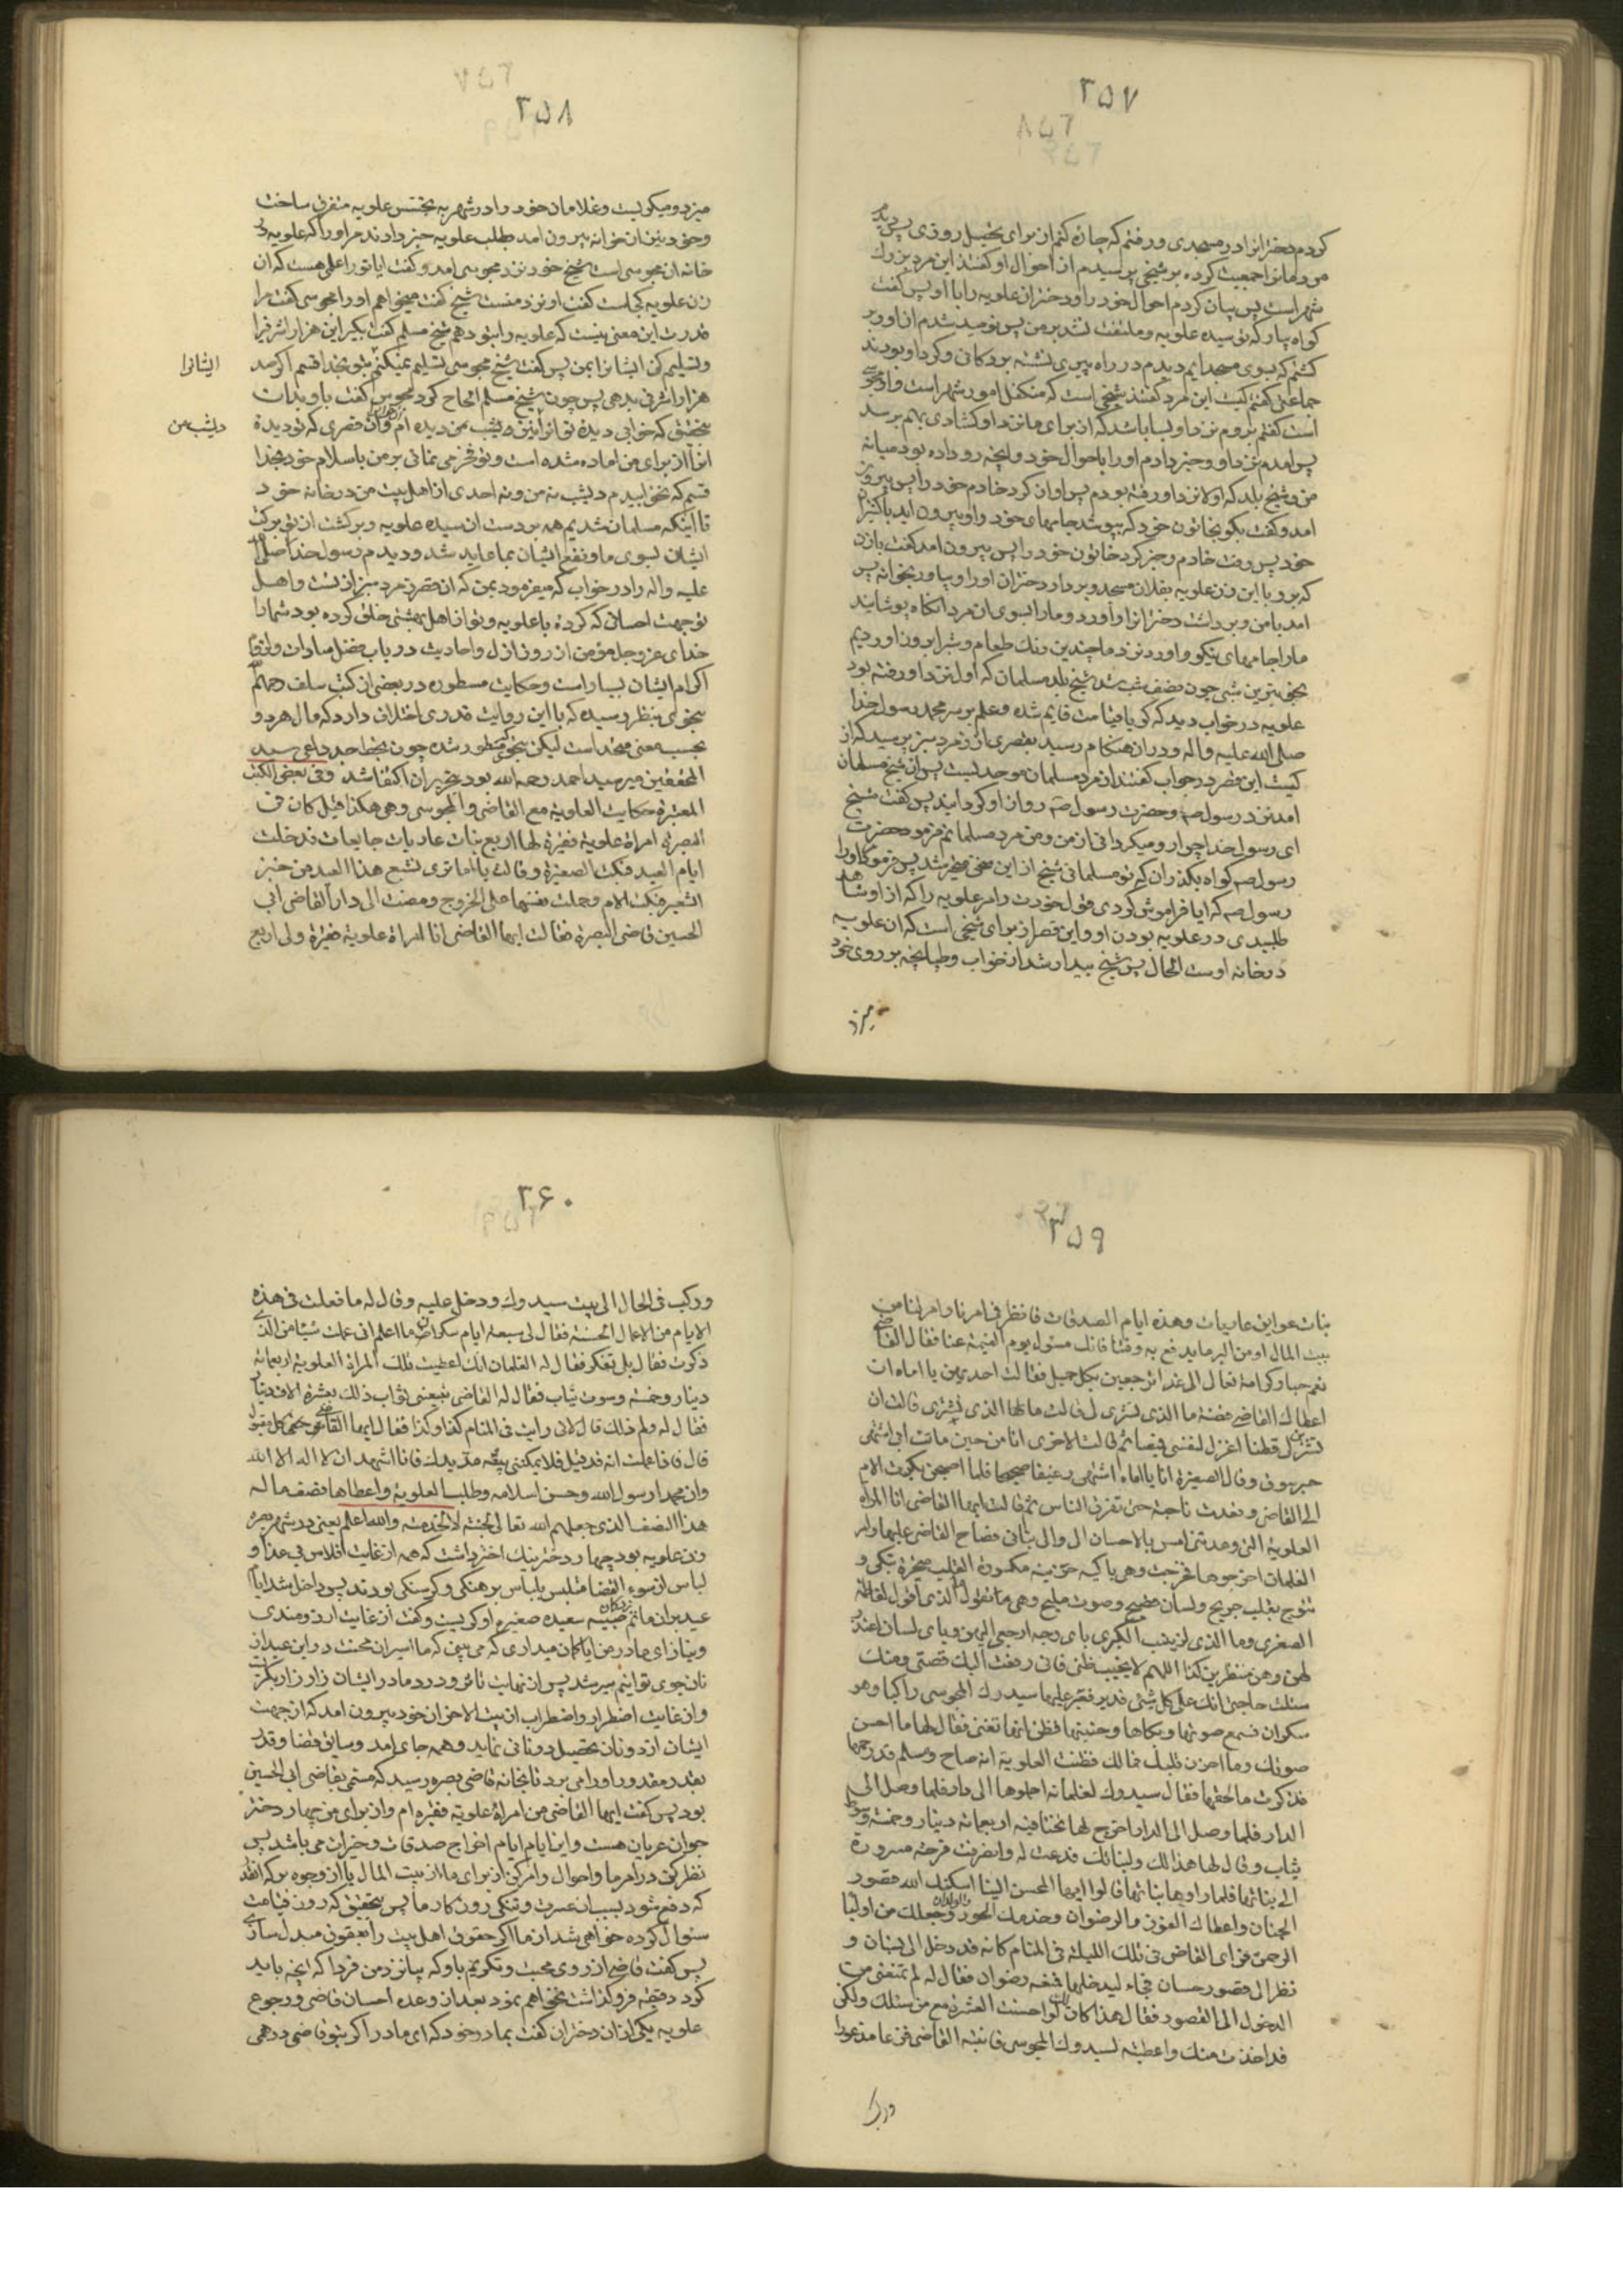 ۲۵۷
کردم دخترانرا در مسجدی و رفتم که چاره کنم از برای تحصیل روزی پس دیدم
مردمانرا جمعیت کرده بر شیخی پرسیدم از احوال او کفتند این مرد بزرك
شهر است پس بیان کردم احوال خود را و دختران علویه را با او پس کفت
کواه بیار که تو سیده علویه و ملتفت نشد بر من پس نومید شدم از او و بر
کشتم که بسوی مسجد ایم دیدم در راه پیری نشسته بر دکانی و کرد او بودند
جماعتی کفتم کیست این مرد کفتند شخصی است که متکفل امور شهر است و او مجوسی
است کفتم بروم نزد او بسا باشد که از برای ما نزد او کشادی بهم برسد
پس امدم نزد او و خبر دادم او را باحوال خود و انچه رو داده بود میانه
من و شیخ بلد که اولا نزد او رفته بودم پس اواز کرد خادم خود را پس بیرون
امد و کفت بکو بخاتون خود که بپوشد جامهای خود را و بیرون اید با کنیزان
خود پس رفت خادم و خبر کرد خاتون خود را پس بیرون امد کفت با زن
که برو با این زن علویه بفلان مسجد و بردار دختران او را و بیاور بخوانه پس
امد با من و برداشت دخترانرا و اورد و ما را بسوی ان مرد انکاه پوشانید
ما را جامهای نیکو و اورد نزد ما چندین رنك طعام و بسر بردن اوردیم
بخوبترین شبی چون نصف شب شد شیخ بلد مسلمان که اول نزد او رفته بود
علویه در خواب دید که کویا قیامت قایم شده و علم بر سر محمد رسول خدا
صلی الله علیه و اله و در ان هنکام رسید بقصری از زمرد سبز پرسید که از
کیست این قصر در جواب کفتند از مرد مسلمان موحد نیست پس ان شیخ مسلمان
امد نزد رسول صم و حضرت رسول صم رو از او کردانید پس کفت شیخ
ای رسول خدا چرا رو میکردانی از من و من مرد مسلمانم فرمود حضرت
رسول صم کواه بکذران که تو مسلمانی شیخ از این سخن متحیر شد پس فرمود او را
رسول صم که ایا فراموش کردی قول خودت را مر علویه را که از او شاهد
طلبیدی در علویه بودن او و این قصر از برای شیخی است که ان علویه
در خانه اوست الحال پس شیخ بیدار شد از خواب و طپانچه بر روی خود
میزد
۲۵۸
میزد و میکریست و غلامان خود را در شهر به تجسس علویه متفرق ساخت
و خود نیز از خوانه بیرون امد بطلب علویه خبر دادند مر او را که علویه در
خانه ان مجوسی است شیخ خود نزد مجوسی امد و کفت ایا تو را علمی هست که ان
زن علویه کجاست کفت او نزد منست شیخ کفت میخواهم او را مجوسی کفت مرا
قدرت این معنی نیست که علویه را بتو دهم شیخ مسلم کفت بکیر این هزار اشرفی را
و تسلیم کن ایشانرا بمن پس کفت شیخ مجوسی تسلیم نمیکنم بتو بخدا قسم اکر صد
هزار اشرفی بدهی پس چون شیخ مسلم الحاح کرد مجوس کفت باو بذات
تحقیق که خوابی دیدهٔ تو انرا نیز دیشب من دیده ام و ان قصری که تو دیدهٔ
ایشانرا
دیشب من
انرا از برای من اماده شده است و تو فخر می نمائی بر من باسلام خود بخدا
قسم که نخوابیدم دیشب نه من و نه احدی از اهل بیت من در خانه خود
تا اینکه مسلمان شدیم همه بر دست ان سیده علویه و برکشت از تو برکت
ایشان بسوی ما و نفع ایشان بما عاید شد و دیدم رسول خدا صلی الله
علیه و اله را در خواب که میفرمود بمن که ان قصر زمرد سبز از تست و اهل
تو جهت احسانی که کردهٔ با علویه و تو از اهل بهشتی خلق کرده بود شما را
خدای عز و جل مؤمن از روز ازل و احادیث در باب فضل سادات و ثواب
اکرام ایشان بسیار است و حکایت مسطوره در بعضی از کتب سلف رحمهم الله
بنحوی بنظر رسیده که با این روایت قدری اختلاف دارد که مال هر دو
بحسب معنی متحد است لیکن بنحو مسطور شده چون بخط اجد داعی سید
المحققین میر سید احمد رحمه الله بود بتحریر ان اکتفا شد و فی بعض الکتب
المعتبرة حکایت العلویة مع القاضی و المجوسی و هی هکذا قیل کان فی
البصرة امراة علویة فقیرة لها اربع بنات عاریات جایعات فدخلت
ایام العید فبکت الصغیرة و قالت یا اماه تری نشبع هذا العید من خبز
الشعیر فبکت الام و حملت نفسها علی الخروج و مضت الی دار القاضی ابی
الحسین قاضی البصرة فقالت ایها القاضی انا امراة علویة فقیرة ولی اربع
۲۵۹
بنات عواتق عاریات و هذه ایام الصدقات فانظر فی امرنا وامر لنا من
بیت المال او من البر ما یدفع به وقتنا فانك مسئول یوم القیمة عنا فقال القاضی
نعم حبا و کرامة تعال الی غدا ثم رجعت بکل جمیل فقالت احدیهن یا اماه ان
اعطاك القاضی فضة ما الذی تشتری لی قالت ما لها الذی تشتری قالت ان
تشترین لی قطنا اغزل لنفسی قمیصا ثم قالت الاخری انا من حین مات ابی اشتهی
خبز سوق و قال الصغیرة انا یا اماه اشتهی رغیفا صحیحا فلما اصبحن بکرت الام
الی القاضی و قعدت ناحیة حتی تفرق الناس ثم قالت ایها القاضی انا المراه
العلویة التی وعدتنی امس بالاحسان الی و الی بناتی فصاح القاضی علیها و امر
الغلمان اخرجوها فخرجت و هی باکیه حزینه مکسورة القلب متحیرة تبکی و
تنوح بقلب جریح و لسان فصیح و صوت ملیح و هی ما تقول ما الذی اقول لفاطمه
الصغری و ما الذی لزینب الکبری بای وجه ارجع الیهن و بای لسان اعتذر
لهن و هن منتظرین کذا اللهم لا تخیب ظنی فانی رفعت الیك قصتی و منك
سئلت حاجتی انك علی کل شیئی قدیر فعبر علیها سیدوك المجوسی راکبا و هو
سکران فسمع صوتها و بکاها و حنینها فظن انها تغنی فقال لها ما احسن
صوتك و ما احزن قلبك فمالك فظنت العلویة انه صاح و مسلم قد رحمها
فذکرت ما لحقها فقال سیدوك لغلمانه احملوها الی دار فلما وصل الی
الدار فلما وصل الی الدار اخرج لها تختا فیه اربعمائة دینار و خمسة و سوت
ثیاب و قال لها هذا لك و لبناتك فدعت له و انصرفت فرحة مسرورة
الی بناتها فلما راوها بناتها قالوا ایها المحسن الینا اسکنك الله قصور
الجنان و اعطاك الفوز مالرضوان و خدمك الحور و الولدان و جعلك من اولیاء
الرحمن فرای القاضی فی تلك اللیلة فی المنام کانه قد دخل الی بستان و
نظر الی قصور حسان فجاء لیدخلها فمنعه رضوان فقال له لم تمنعنی من
الدخول الی القصور فقال هذا کان لك لو احسنت العشرة مع من سئلك ولکن
قد اخذت منك و اعطیته لسیدوك المجوسی فانتبه القاضی فزعا مذعورا
ورکب
۲۶۰
و رکب فی الحال الی بیت سیدوك و دخل علیه و قال له ما فعلت فی هذه
الایام من الاعمال الحسنة فقال لی سبعة ایام سکران ما اعلم انی عملت شیئا من الذی
ذکرت فقال بلی تفکر فقال له الغلمان انك اعطیت تلك المراة العلویة اربعمائة
دینار و خمسة و سوت ثیاب فقال له القاضی تبیعنی ثواب ذلك بعشرة الاف دینار
فقال له ولم ذلك قال لانی رایت فی المنام کذا و کذا فقال ایها القاضی
قال فاذا علمت انه قد قبل فلا یمکننی بیعه مد یدك فانا اشهد ان لا اله الا الله
وان محمدا رسول الله و حسن اسلامه و طلب العلویة و اعطاها نصف ماله
هذا النصف الذی جعلهم الله تعالی للجنة لا للخدمة و الله اعلم یعنی در شهر بصره
زن علویه بود چهار دختر نیك اختر داشت که همه از غایت افلاس بی غذا و
لباس از سوء القضا متلبس بلباس برهنکی و کرسنکی بودند پس داخل شد ایام
عید بران ماتم زدکان حبیبه سعیده صغیره او کریست و کفت از غایت ارزومندی
و نیاز ای مادر من ایا کمان میداری که می بینی که ما اسیران محنت در این عید از
نان جوی توانیم سیر شد پس از نهایت تاثر و درد مادر ایشان زار زار بکریست
و از غایت اضطرار و اضطراب از بیت الاحزان خود بیرون امد که از جهت
ایشان ازد و نان تحصیل دو نانی نماید و همه جا می امد و سائق قضا و قدر
بقدر مقدور او را می برد تا بخانه قاضی بصره رسید که مسمی بقاضی ابی الحسین
بود پس کفت ایها القاضی من امراة علویة فقیره ام و از برای من چهار دختر
جوان عریان هست و این ایام ایام اخراج صدقات و خیرات می باشد پس
نظر کن در امر ما و احوال و امر کن از برای ما از بیت المال یا از وجوه بر که انقدر
که دفع شود بسبب ان عسرت و تنکی روزکار ما پس بتحقیق که روز قیامت
سئوال کرده خواهی شد از ما اکر حقوق اهل بیت را بعقوق مبدل سازی
پس کفت قاضی از روی محبت و تکریم باو که بیا نزد من فردا که انچه باید
کرد دقیقه فروکذاشت نخواهم نمود بعد از وعده احسان قاضی و رجوع
علویه یکی از ان دختران کفت بمادر خود که ای مادر اکر بتو قاضی درهمی